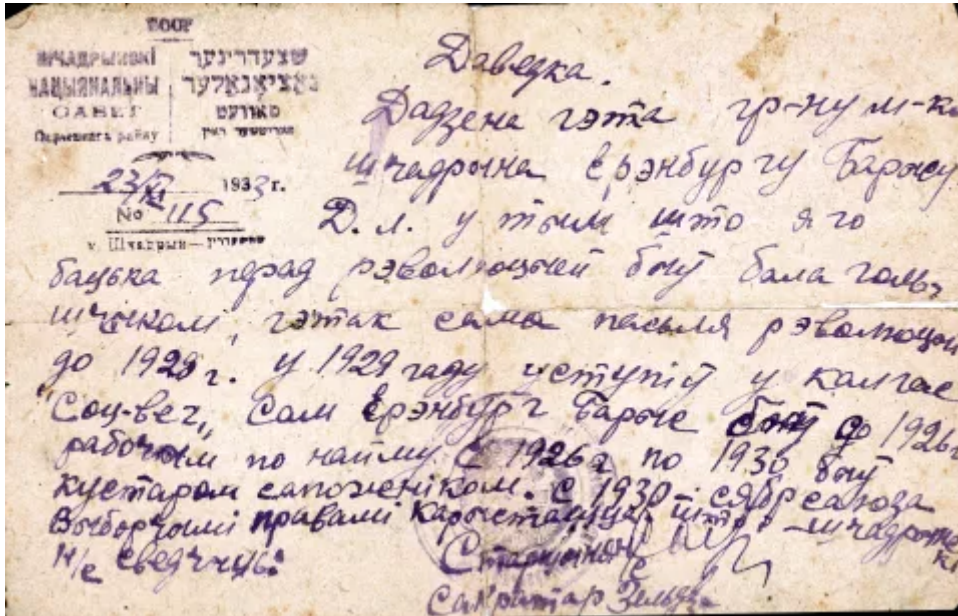 БССР
ШЧАДРЫНСКІ
НАЦЫЯНАЛЬНЫ
САВЕТ
Парыцкага раёну
שצעדרינער
נאציאנאלער
סאוועט
23/XI 1933 г.
№ 115
v. Шчадрын —
Даведка.
Дадзена гэта гр-ну м-ка
Шчадрына Ерэнбургу Барысу
Д. л. у тым што яго
бацька перад рэвалюцыей быў балаголь-
шчыком, гэтак сама пасьля рэвалюцыи
до 1929 г. У 1929 гаду уступіў у калгас
"Соц-вег", Сам Ерэнбург Барыс быў до 1926 г
рабочым по найму с 1926 г по 1930 быў
кустаром сапожніком. С 1930 - сябр саюза
Выборчымі правамі карыстаецца, што Шчадрынскі
н/с сведчыць.
Старшыня
Сакратар